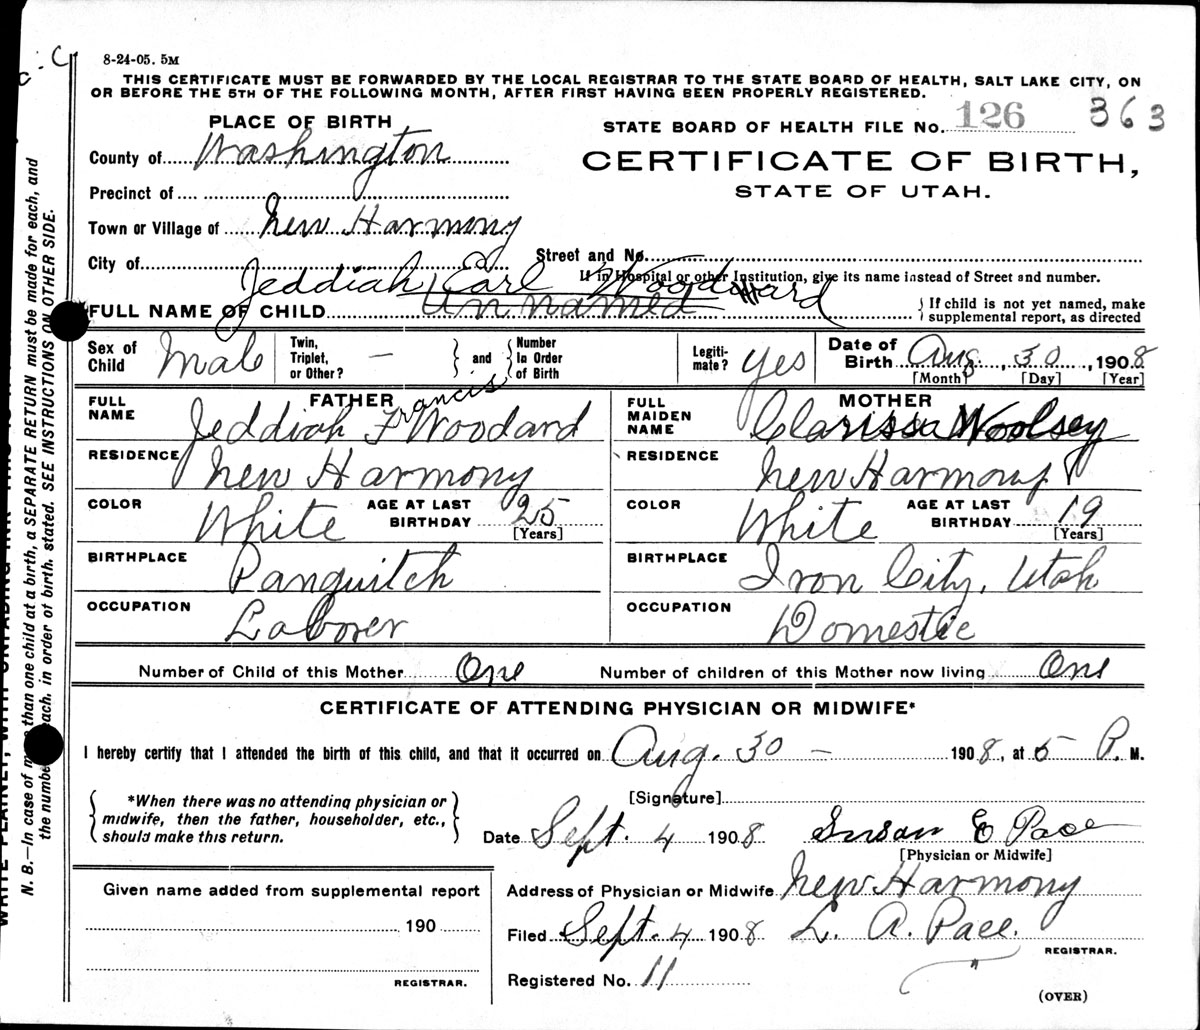 8-24-05. 5M
THIS CERTIFICATE MUST BE FORWARDED BY THE LOCAL REGISTRAR TO THE STATE BOARD OF HEALTH, SALT LAKE CITY, ON
OR BEFORE THE 5TH OF THE FOLLOWING MONTH, AFTER FIRST HAVING BEEN PROPERLY REGISTERED.
PLACE OF BIRTH
STATE BOARD OF HEALTH FILE No. 126 363
County of Washington
CERTIFICATE OF BIRTH,
STATE OF UTAH.
Precinct of
Town or Village of New Harmony
City of
Street and No.
If in Hospital or other Institution, give its name instead of Street and number.
Jeddiah Earl Woodard
FULL NAME OF CHILD Un named
{ If child is not yet named, make
supplemental report, as directed
Sex of Child Male
Twin, Triplet, or Other? —
and
Number In Order of Birth
Legiti-mate? Yes
Date of Birth Aug. 30, 1908
[Month] [Day] [Year]
FATHER
FULL NAME Jeddiah F Francis Woodard
RESIDENCE New Harmony
COLOR White AGE AT LAST BIRTHDAY 25 [Years]
BIRTHPLACE Panguitch
OCCUPATION Laborer
MOTHER
FULL MAIDEN NAME Clarissa Woolsey
RESIDENCE New Harmony
COLOR White AGE AT LAST BIRTHDAY 19 [Years]
BIRTHPLACE Iron City, Utah
OCCUPATION Domestic
Number of Child of this Mother One Number of children of this Mother now living One
CERTIFICATE OF ATTENDING PHYSICIAN OR MIDWIFE*
I hereby certify that I attended the birth of this child, and that it occurred on Aug. 30 — 1908, at 5 P. M.
*When there was no attending physician or
midwife, then the father, householder, etc.,
should make this return.
[Signature]
Date Sept. 4 1908 Susan E Pace
[Physician or Midwife]
Given name added from supplemental report
190
REGISTRAR.
Address of Physician or Midwife New Harmony
Filed Sept. 4 1908 L. A. Pace.
REGISTRAR.
Registered No. 11
(OVER)
N. B.—In case of more than one child at a birth, a SEPARATE RETURN must be made for each, and
the number each, in order of birth, stated. SEE INSTRUCTIONS ON OTHER SIDE.